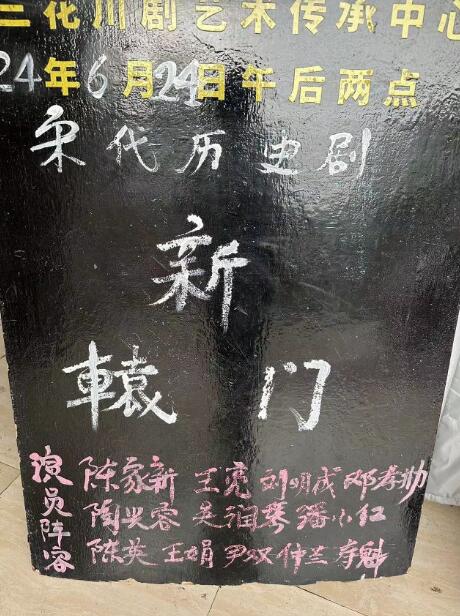 三花川剧艺术传承中心
24年6月24日午后两点
宋代历史剧
新
辕门
演员阵容
陈家新 王亮 刘明成 邓孝勋
陶兴容 吴润琴 潘小红
陈英 王娟 尹双 仲兰 李魁